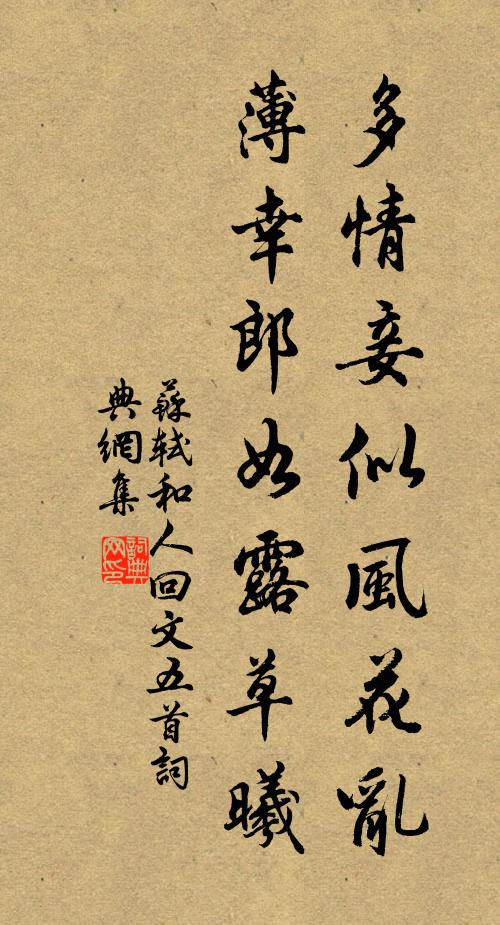 多情妾似風花亂
薄幸郎如露草曦
蘇軾和人回文五首詞
典網集
詞典
网印